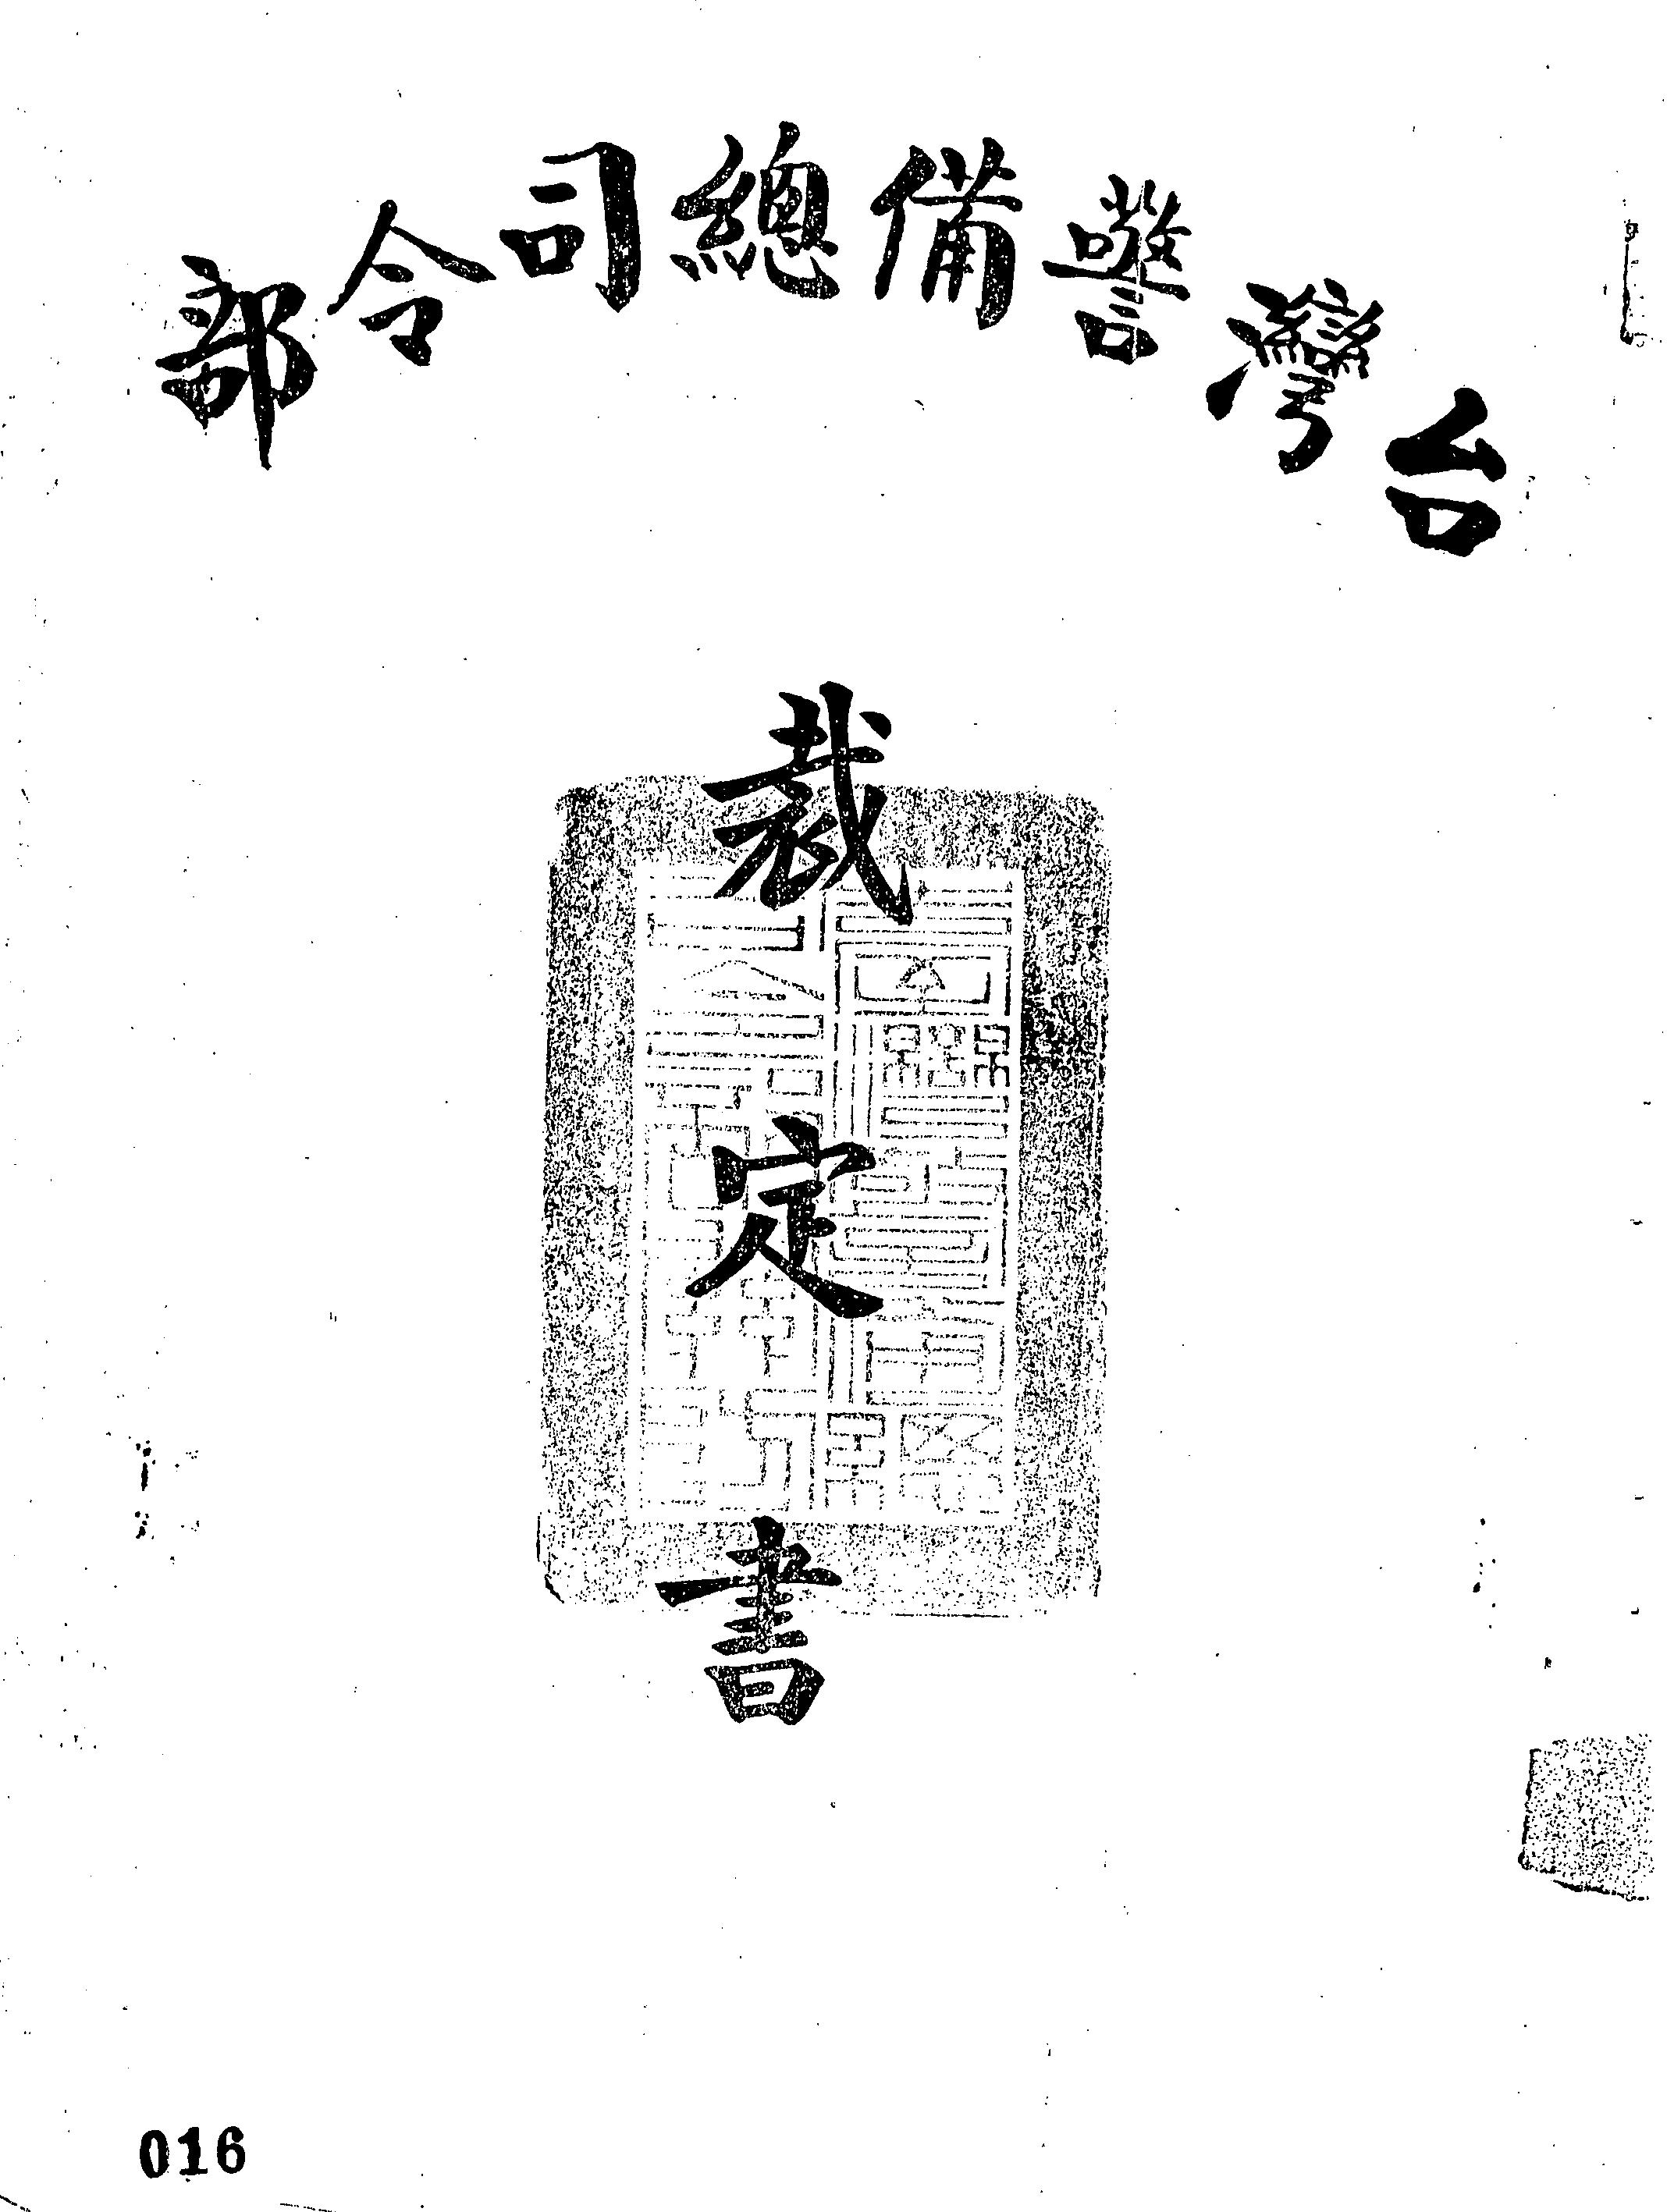 台灣警備總司令部
裁定書
016